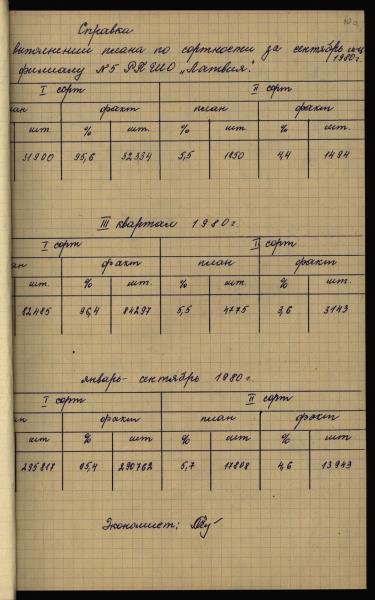 10а
Справка
выполнении плана по сортности за сентябрь м-ц
1980г.
филиалу №5 РПШО "Латвия".
I сорт II сорт
лан факт план факт
шт. % шт. % шт. % шт.
31900 95,6 32334 5,5 1850 4,4 1494
III квартал 1980г.
I сорт II сорт
ан факт план факт
шт. % шт. % шт. % шт.
82485 96,4 84297 5,5 4775 3,6 3143
январь-сентябрь 1980г.
I сорт II сорт
ан факт план факт
шт % шт % шт % шт
295817 95,4 290762 5,7 17808 4,6 13943
Экономист: